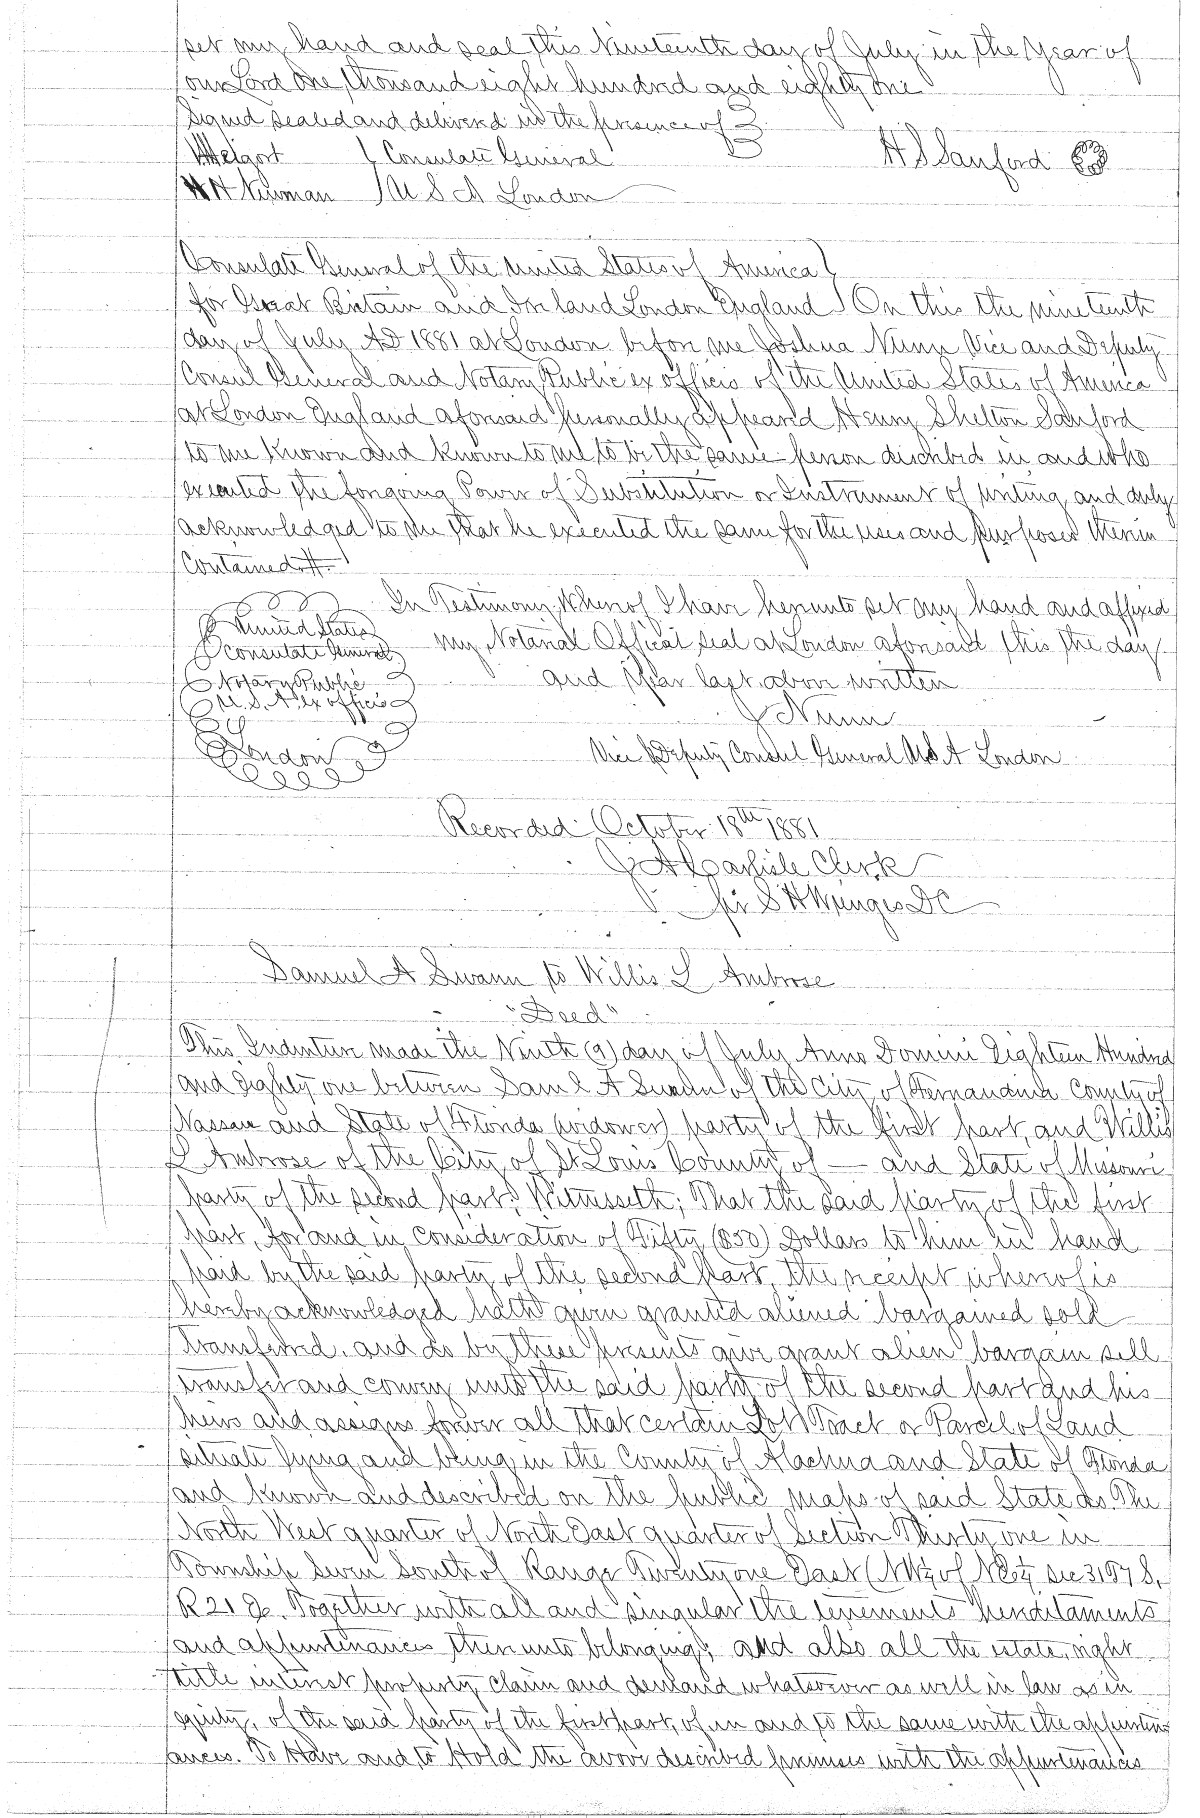 set my hand and seal this Nineteenth day of July in the Year of
our Lord One thousand eight hundred and eighty one
Signed sealed and delivered in the presence of
Consulate General H S Sanford
H Newman U S A London
Consulate General of the United States of America
for Great Britain and Ireland London England On this the nineteenth
day of July AD 1881 at London before me Joshua Nunn Vice and Deputy
Consul General and Notary Public ex officio of the United States of America
at London England aforesaid personally appeared Henry Shelton Sanford
to me known and known to me to be the same person discribed in and who
executed the foregoing Power of Substitution or Instrument of writing and duly
acknowledged to me that he executed the same for the uses and purposes therein
Contained #
In Testimony Whereof I have hereunto set my hand and affixed
my Notarial Official seal at London aforesaid this the day
and Year last above written
United States
Consulate General
Notary Public
U.S.A. ex officio
London
J Nunn
Vice & Deputy Consul General U S A London
Recorded October 18th 1881
J A Carlisle Clerk
per S H Wienges DC
Samuel A Swann to Willis L Ambrose
"Deed"
This Indenture made the Ninth (9) day of July Anno Domini Eighteen Hundred
and Eighty one between Saml A Swann of the City of Fernandina County of
Nassau and State of Florida (widower) party of the first part, and Willis
L Ambrose of the City of St Louis County of — and State of Missouri
party of the second part; Witnesseth; That the said party of the first
part, for and in consideration of Fifty ($50) Dollars to him in hand
paid by the said party of the second part, the receipt whereof is
hereby acknowledged hath given granted aliened bargained sold
transferred. and do by these presents give grant alien bargain sell
transfer and convey unto the said party of the second part and his
heirs and assigns forever all that certain Lot Tract or Parcel of Land
situate lying and being in the County of Alachua and State of Florida
and known and described on the public maps of said State as The
North West quarter of North East quarter of Section Thirty one in
Township Seven South of Range Twenty one East (NW¼ of NE¼ sec 31 T 7 S.
R 21 E. Together with all and singular the tenements hereditaments
and appurtenances thereunto belonging; and also all the estate, right
title interest property claim and demand whatsoever as well in law as in
equity, of the said party of the first part, of in and to the same with the appurten
ances. To Have and to Hold the above described premises with the appurtenances